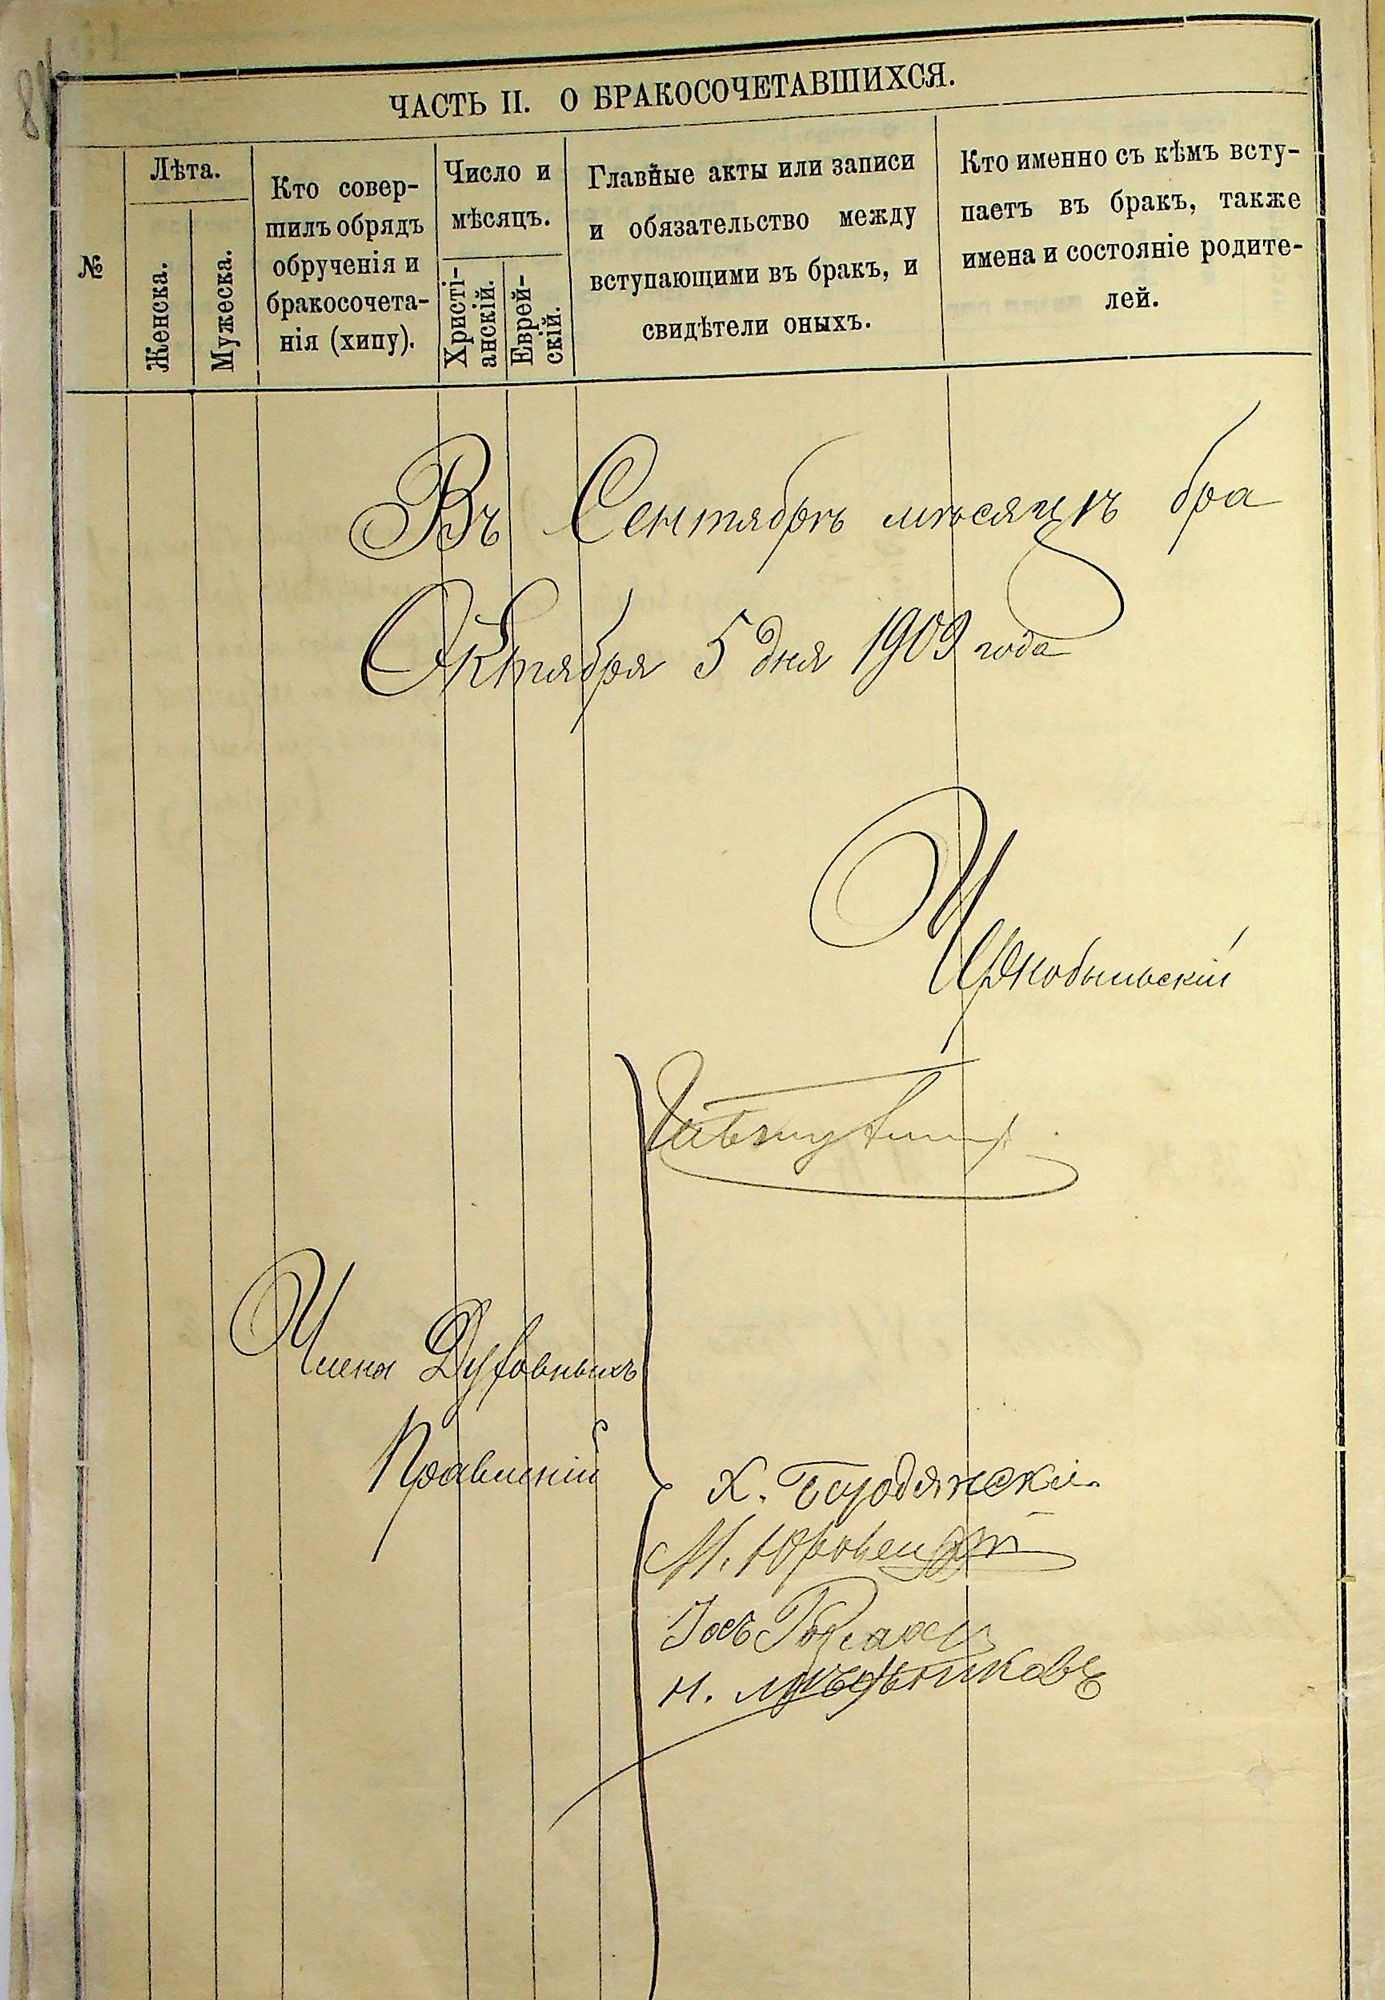 ЧАСТЬ II. О БРАКОСОЧЕТАВШИХСЯ.
№
Лѣта.
Женска.
Мужеска.
Кто совер-
шилъ обрядъ
обрученія и
бракосочета-
нія (хипу).
Число и
мѣсяцъ.
Христі-
анскій.
Еврей-
скій.
Главные акты или записи
и обязательство между
вступающими въ бракъ, и
свидѣтели оныхъ.
Кто именно съ кѣмъ всту-
паетъ въ бракъ, также
имена и состояніе родите-
лей.
Въ Сентябрѣ мѣсяцѣ бра
Октября 5 дня 1909 года
Члены Духовныхъ
Правленій
Х. Бородянскі
М. Юровецкій
Н. Мѣльниковъ